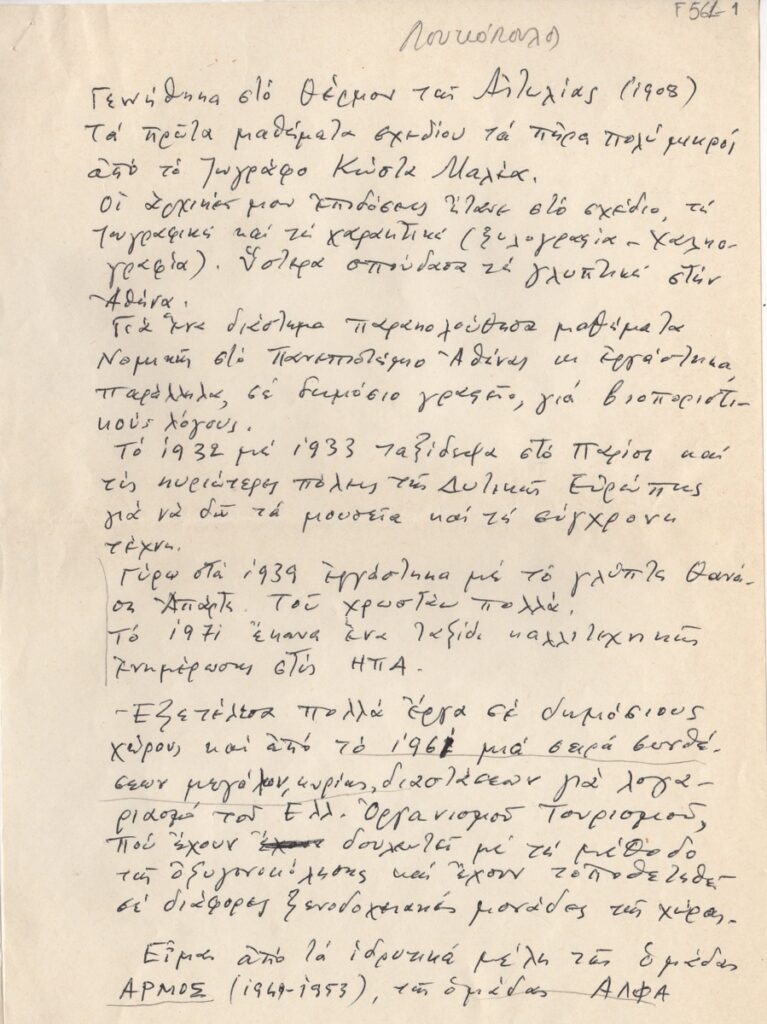 F 56-1
Λουκόπουλο
Γεννήθηκα στό Θέρμον τῆς Αἰτωλίας (1908)
Τά πρῶτα μαθήματα σχεδίου τά πῆρα πολύ μικρός
ἀπό τό ζωγράφο Κώστα Μαλέα.
Οἱ ἀρχικές μου ἐπιδόσεις ἤτανε στό σχέδιο, τή
ζωγραφική καί τή χαρακτική (ξυλογραφία - χαλκο-
γραφία). Ὕστερα σπούδασα τή γλυπτική στήν
Ἀθήνα.
Γιά ἕνα διάστημα παρακολούθησα μαθήματα
Νομικῆς στό Πανεπιστήμιο Ἀθήνας κι ἐργάστηκα,
παράλληλα, σέ δημόσιο γραφεῖο, γιά βιοποριστι-
κούς λόγους.
Τό 1932 μέ 1933 ταξίδεψα στό Παρίσι καί
τίς κυριώτερες πόλεις τῆς Δυτικῆς Εὐρώπης
γιά νά δῶ τά μουσεῖα καί τή σύγχρονη
τέχνη.
Γύρω στά 1939 ἐργάστηκα μέ τό γλύπτη Θανά-
ση Ἀπάρτη. Τοῦ χρωστάω πολλά.
Τό 1971 ἔκανα ἕνα ταξίδι καλλιτεχνικῆς
ἐνημέρωσης στίς ΗΠΑ.
- Ἐξετέλεσα πολλά ἔργα σέ δημόσιους
χώρους καί ἀπό τό 1961 μιά σειρά συνθέ-
σεων μεγάλων, κυρίως, διαστάσεων γιά λογα-
ριασμό τοῦ Ἑλλ. Ὀργανισμοῦ Τουρισμοῦ,
πού ἔχουν δουλευτεῖ μέ τή μέθοδο
τῆς ὀξυγονοκόλλησης καί ἔχουν τοποθετηθεῖ
σέ διάφορες ξενοδοχειακές μονάδες τῆς χώρας.
Εἶμαι ἀπό τά ἱδρυτικά μέλη τῆς ὁμάδας
ΑΡΜΟΣ (1949-1953), τῆς ὁμάδας ΑΛΦΑ